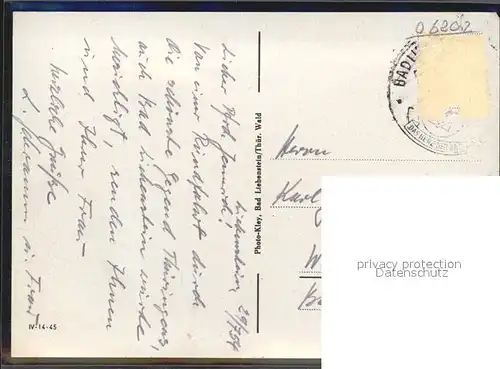 Liebenstein 29/7 54
Lieber Pfd. 
Von einer Rundfahrt durch
die schönste Gegend Thüringens,
auch Bad Liebenstein wurde
besichtigt, senden Ihnen
und Ihrer Frau
herzliche Grüße
u. Frau
IV-14-45
Photo-Kley, Bad Liebenstein/Thür. Wald
06202
BAD LI
Herrn
Karl
W
Ba
privacy protection
Datenschutz